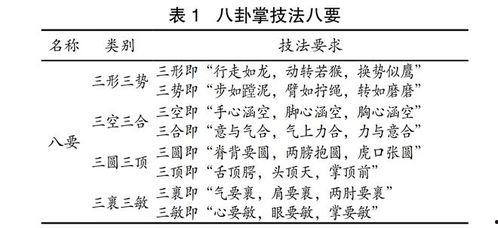 表 1 八卦掌技法八要
名称 类别 技法要求
三形三势 三形即“行走如龙，动转若猴，换势似鹰”
三势即“步如蹚泥，臂如拧绳，转如磨磨”
三空三合 三空即“手心涵空，脚心涵空，胸心涵空”
三合即“意与气合，气上力合，力与意合”
八要
三圆三顶 三圆即“脊背要圆，两膀抱圆，虎口张圆”
三顶即“舌顶腭，头顶天，掌顶前”
三裹三敏 三裹即“气要裹，肩要裹，两肘要裹”
三敏即“心要敏，眼要敏，掌要敏”